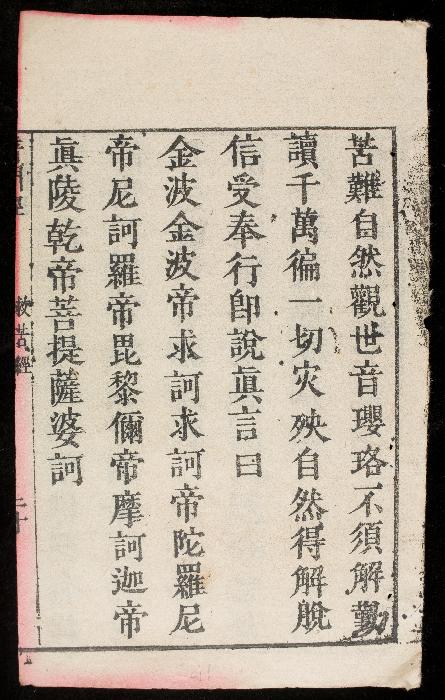 苦難自然觀世音瓔珞不須解勤
讀千萬徧一切灾殃自然得解脫
信受奉行卽說眞言曰
金波金波帝求訶求訶帝陀羅尼
帝尼訶羅帝毘黎儞帝摩訶迦帝
眞陵乾帝菩提薩婆訶
救苦經
二十